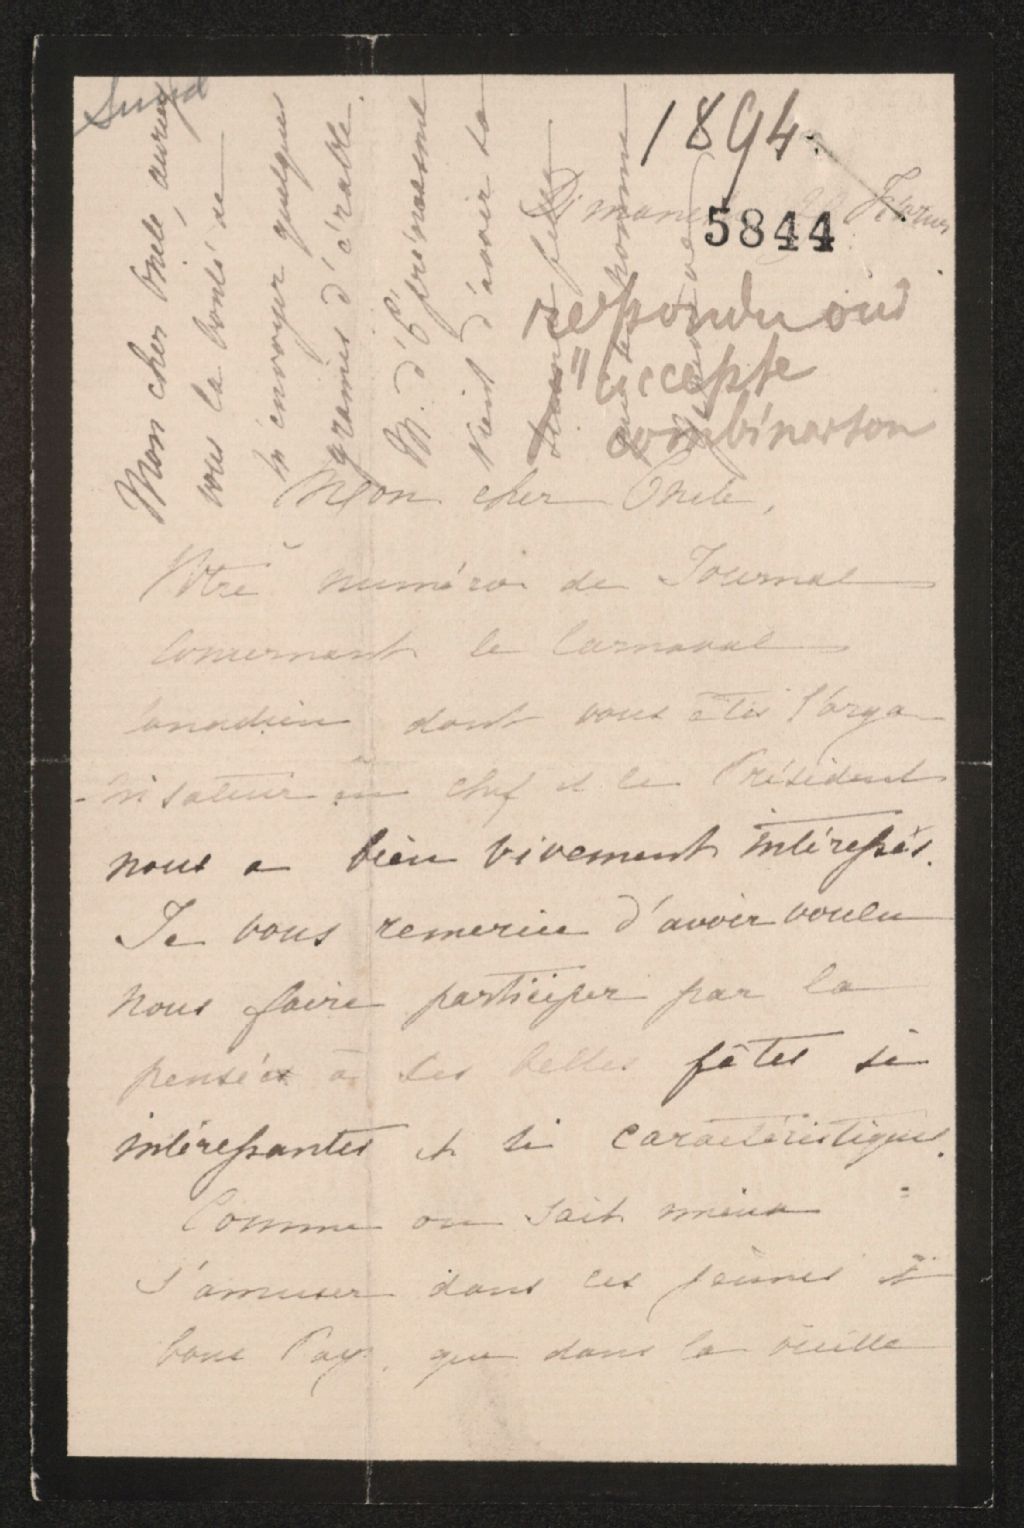 1894.
Dimanche Février
5844
respondu oui
" accepte
combinaison
Mon cher Oncle, auriez
vous la bonté de
m'envoyer quelques
graines d'érable.
M. d'Eprémesnil
vient d'avoir sa
Mon cher Oncle,
Votre numéro de Journal
concernant le Carnaval
Canadien dont vous êtes l'orga
-nisateur en chef et le Président
nous a bien vivement intéressés.
Je vous remercie d'avoir voulu
nous faire participer par la
pensée à ces belles fêtes si
intéressantes et si caractéristiques.
Comme on sait mieux
s'amuser dans ces jeunes et
bons Pays, que dans la vieille